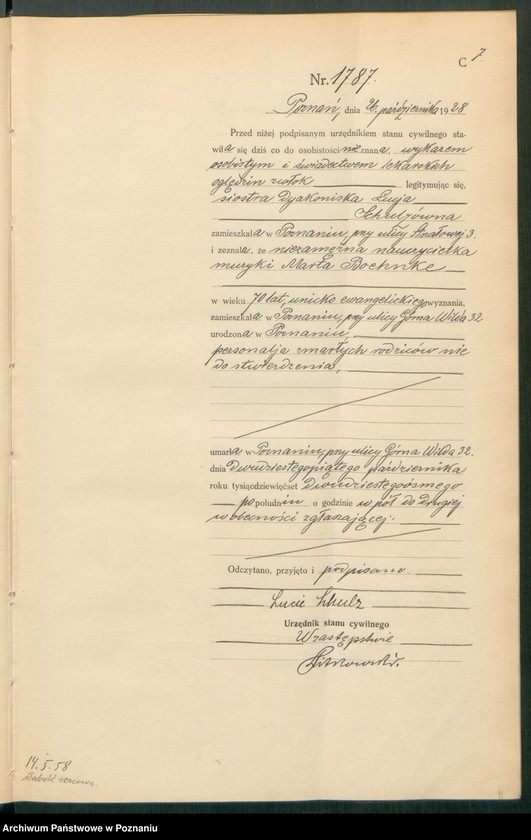 C 7
Nr. 1787.
Poznań, dnia 26. października 1928
Przed niżej podpisanym urzędnikiem stanu cywilnego sta-
wiła się dziś co do osobistości nieznana, wykazem
osobistym i świadectwem lekarskich
oględzin zwłok legitymując się,
siostra Dyakoniska Lucja
Schulzówna
zamieszkała w Poznaniu, przy ulicy 3.
i zeznała, że niezamężna nauczycielka
muzyki Marta Boehnke
w wieku 70 lat, unicko ewangelickiego wyznania,
zamieszkała w Poznaniu, przy ulicy Górna Wilda 32
urodzona w Poznaniu,
personalja zmarłych rodziców nie
do stwierdzenia,
umarła w Poznaniu, przy ulicy Górna Wilda 32.
dnia Dwudziestegopiątego października
roku tysiącdziewięćset Dwudziestegoósmego
po południu o godzinie w pół do drugiej
w obecności zgłaszającej.
Odczytano, przyjęto i podpisano
Lucie Schulz
Urzędnik stanu cywilnego
W zastępstwie
14.5.58
słabość sercowa.
Archiwum Państwowe w Poznaniu